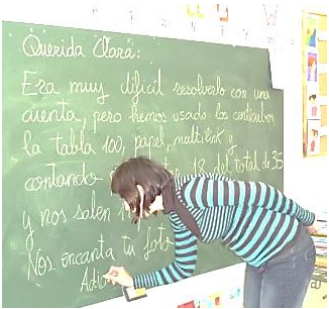 Querida Clara:
Era muy difícil resolverlo con una
cuenta, pero hemos usado los
la tabla 100, papel, multilink y
contando 18 del total de 35
y nos salen
Nos encanta tu foto
Adio